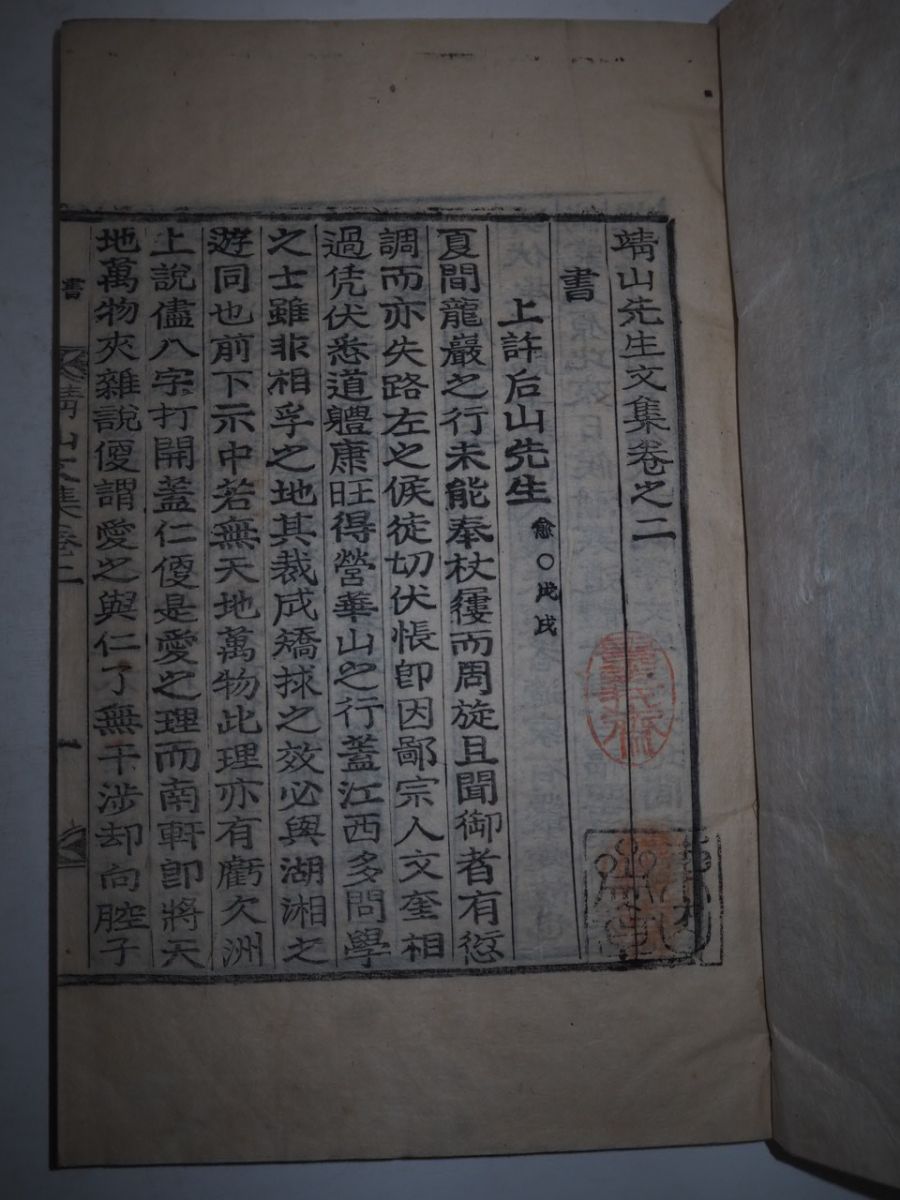 靖山先生文集卷之二
書
上許后山先生 愈○戊戌
夏間龍巖之行未能奉杖屨而周旋且聞御者有愆
調而亦失路左之候徒切伏悵卽因鄙宗人文奎相
過凭伏悉道軆康旺得營華山之行蓋江西多問學
之士雖非相孚之地其裁成矯捄之效必與湖湘之
遊同也前下示中若無天地萬物此理亦有虧欠洲
上說儘八字打開蓋仁便是愛之理而南軒卽將天
地萬物夾雜說便謂愛之與仁了無干涉却向腔子
書 靖山文集卷二 一